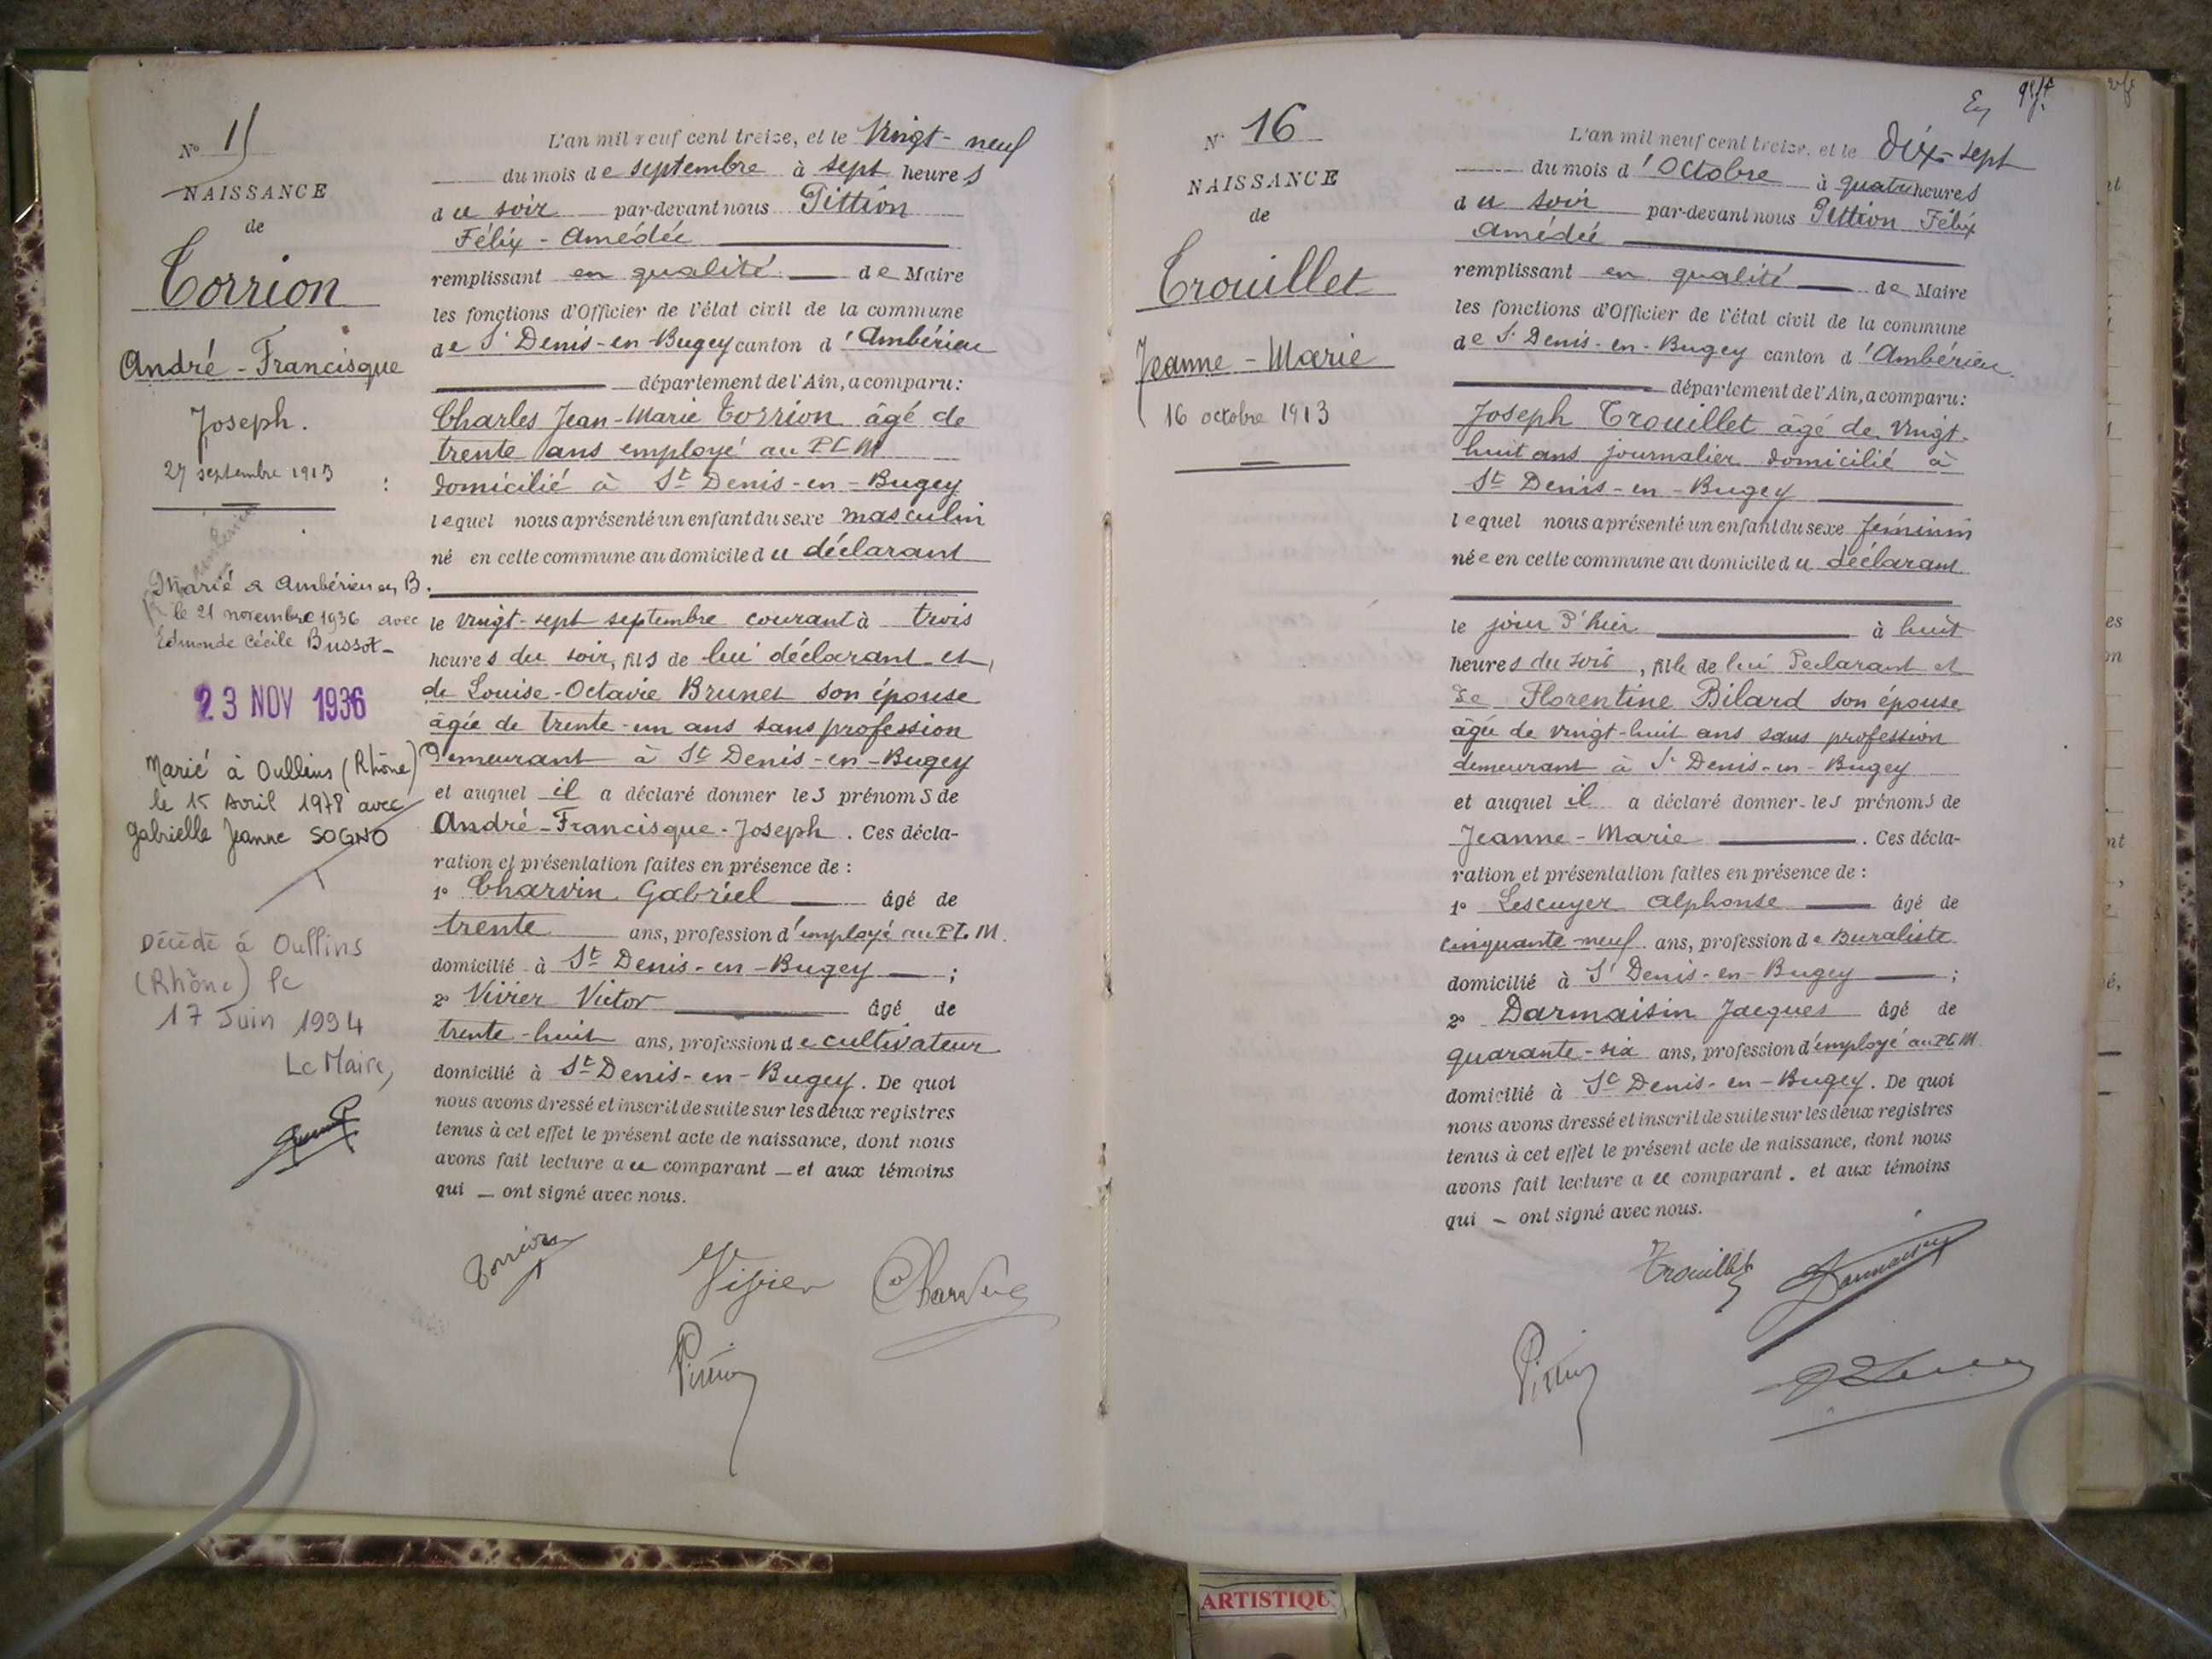 N° 15
NAISSANCE
de
Torrion
André-Francisque
Joseph.
27 septembre 1913
Marié à Ambérieu en B.
le 21 novembre 1936 avec
Edmonde Cécile Bussot-
23 NOV 1936
Marié à Oullins (Rhône)
le 15 Avril 1978 avec
Gabrielle Jeanne SOGNO
Décédé à Oullins
(Rhône) le
17 Juin 1994
Le Maire,
L'an mil neuf cent treize, et le Vingt-neuf
du mois de septembre à sept heures
du soir par-devant nous Pittion
Félix-Amédée
remplissant en qualité de Maire
les fonctions d'Officier de l'état civil de la commune
de St Denis-en-Bugey canton d'Ambérieu
département de l'Ain, a comparu:
Charles Jean-Marie Torrion âgé de
trente ans employé au PLM
domicilié à St Denis-en-Bugey
lequel nous a présenté un enfant du sexe masculin
né en cette commune au domicile du déclarant
le vingt-sept septembre courant à trois
heures du soir, fils de lui déclarant et,
de Louise-Octavie Brunet son épouse
âgée de trente-un ans sans profession
Demeurant à St Denis-en-Bugey
et auquel il a déclaré donner les prénoms de
André-Francisque-Joseph. Ces décla-
ration et présentation faites en présence de:
1° Charvin Gabriel âgé de
trente ans, profession d'employé au PLM.
domicilié à St Denis-en-Bugey ;
2° Vivier Victor âgé de
trente-huit ans, profession de cultivateur
domicilié à St Denis-en-Bugey. De quoi
nous avons dressé et inscrit de suite sur les deux registres
tenus à cet effet le présent acte de naissance, dont nous
avons fait lecture au comparant et aux témoins
qui ont signé avec nous.
Torrion Vivier Charvin
Pittion
N° 16
NAISSANCE
de
Trouillet
Jeanne-Marie
16 octobre 1913
L'an mil neuf cent treize, et le dix-sept
du mois d'Octobre à quatre heures
du soir par-devant nous Pittion Félix
Amédée
remplissant en qualité de Maire
les fonctions d'Officier de l'état civil de la commune
de St Denis-en-Bugey canton d'Ambérieu
département de l'Ain, a comparu:
Joseph Trouillet âgé de vingt-
huit ans journalier domicilié à
St Denis-en-Bugey
lequel nous a présenté un enfant du sexe féminin
née en cette commune au domicile du déclarant
le jour d'hier à huit
heures du soir, fille de lui déclarant et
de Florentine Bilard son épouse
âgée de vingt-huit ans sans profession
demeurant à St Denis-en-Bugey
et auquel il a déclaré donner les prénoms de
Jeanne-Marie . Ces décla-
ration et présentation faites en présence de:
1° Lescuyer Alphonse âgé de
cinquante-neuf ans, profession de Buraliste
domicilié à St Denis-en-Bugey ;
2° Darmaisin Jacques âgé de
quarante-six ans, profession d'employé au PLM
domicilié à St Denis-en-Bugey. De quoi
nous avons dressé et inscrit de suite sur les deux registres
tenus à cet effet le présent acte de naissance, dont nous
avons fait lecture au comparant. et aux témoins
qui ont signé avec nous.
Trouillet Darmaisin
Pittion
ARTISTIQU